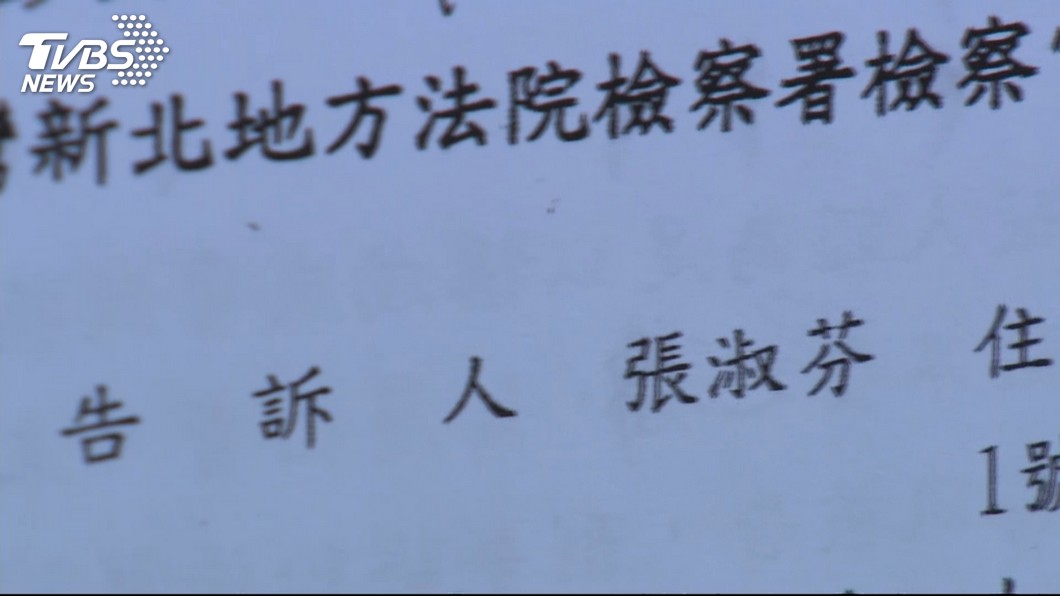 TVBS
NEWS
新北地方法院檢察署檢察
告訴人 張淑芬 住
1號